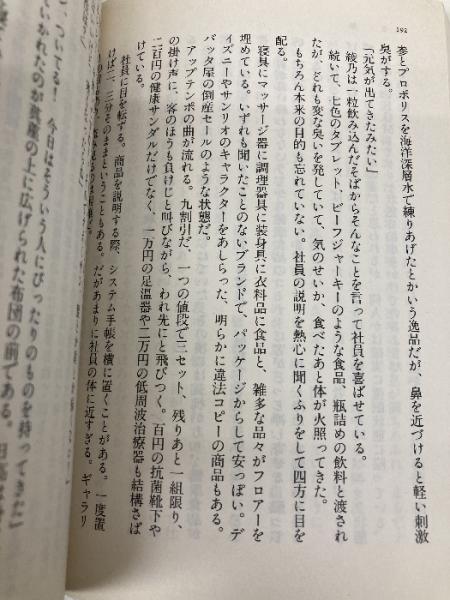 192
参とプロポリスを海洋深層水で練りあげたとかいう逸品だが、鼻を近づけると軽い刺激
臭がする。
「元気が出てきたみたい」
綾乃は一粒飲み込んだそばからそんなことを言って社員を喜ばせている。
続いて、七色のタブレット、ビーフジャーキーのような食品、瓶詰めの飲料と渡され
たが、どれも変な臭いを発していて、気のせいか、食べたあと体が火照ってきた。
もちろん本来の目的も忘れていない。社員の説明を熱心に聞くふりをして四方に目を
配る。
寝具にマッサージ器に調理器具に装身具に衣料品に食品と、雑多な品々がフロアーを
埋めている。いずれも聞いたことのないブランドで、パッケージからして安っぽい。デ
ィズニーやサンリオのキャラクターをあしらった、明らかに違法コピーの商品もある。
バッタ屋の倒産セールのような状態だ。
アップテンポの曲が流れる。九割引だ、一つの値段で三セット、残りあと一組限り、
の掛け声に、客のほうも負けじと叫びながら、われ先にと飛びつく。百円の抗菌靴下や
二百円の健康サンダルだけでなく、一万円の足温器や二万円の低周波治療器も結構さば
けている。
社員に目を転ずる。商品を説明する際、システム手帳を横に置くことがある。一度置
けば二、三分そのままということもある。だがあまりに社員の体に近すぎる。ギャラリ
ついてる！
日はそういう人にぴったりのものを持ってきた」
いかれたのが
の上に広げられた布団の前である。